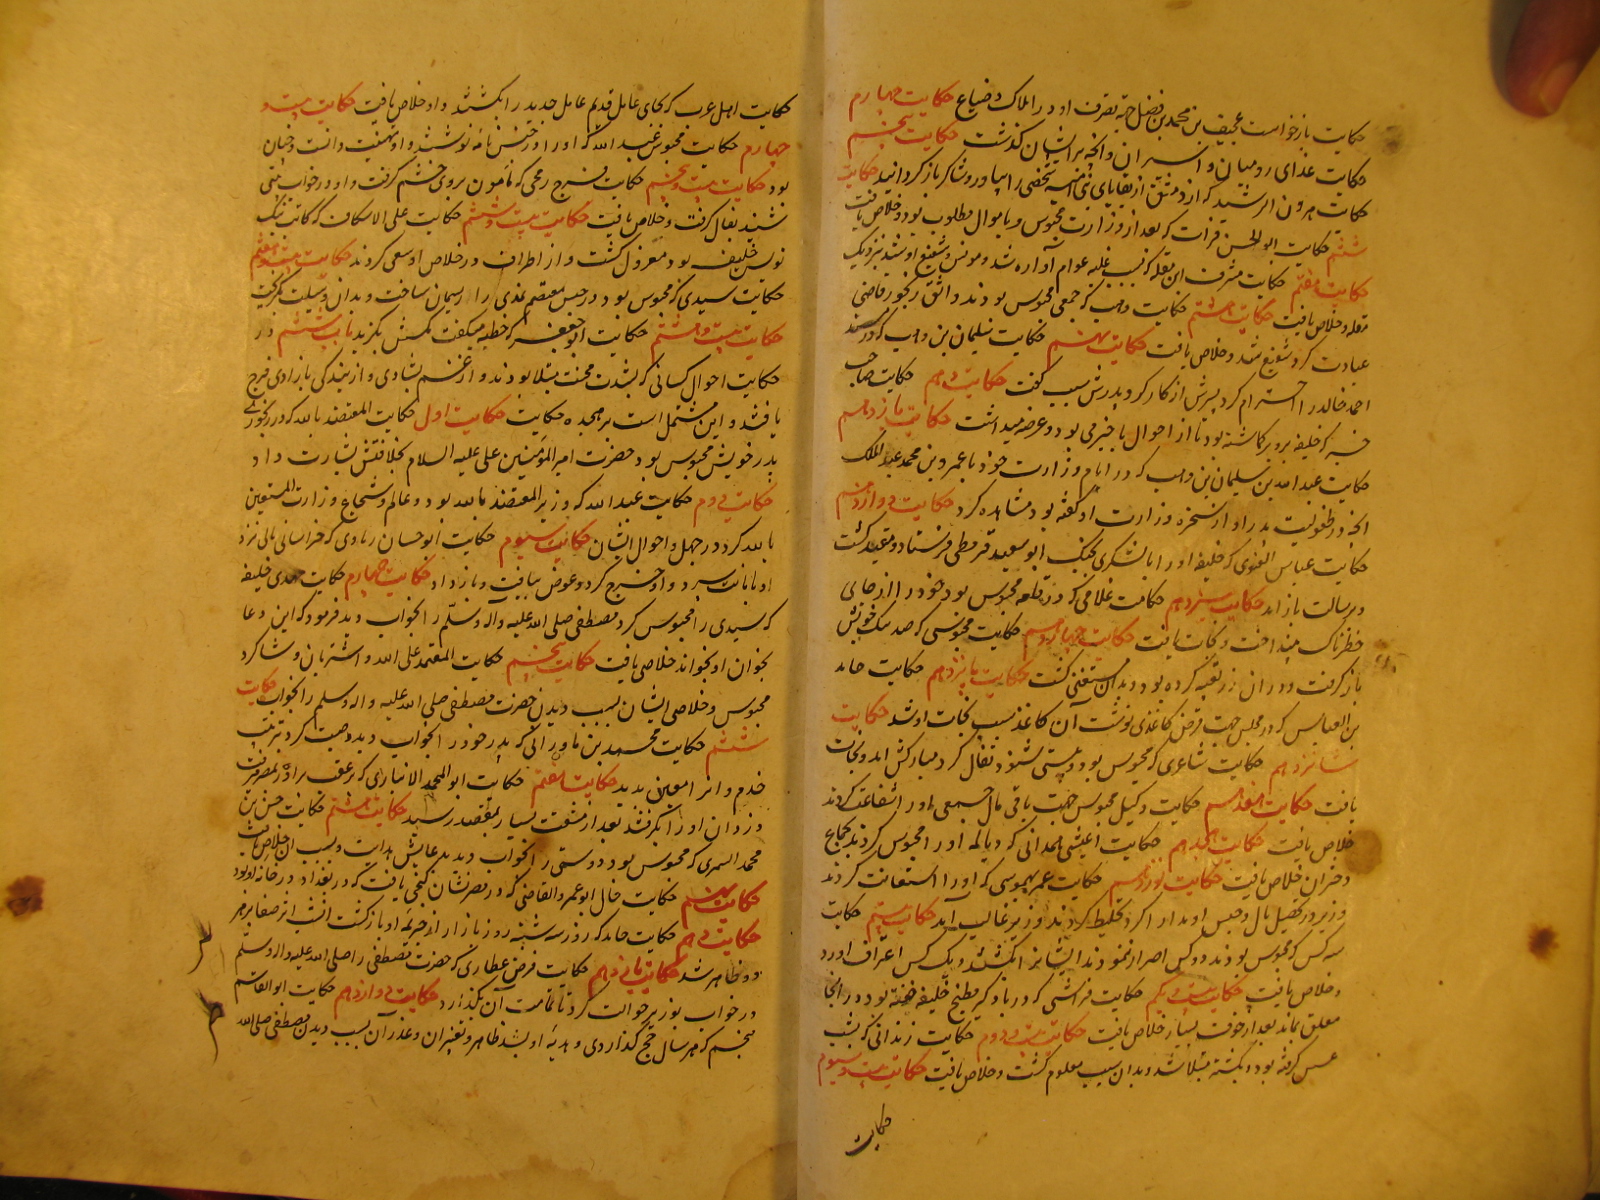 حکایت بازخواست عجیف بن محمد بن فضل جهة تصرف او در املاک و ضیاع حکایت چهارم
حکایت غذای رومیان و اسیران و آنچه بر ایشان گذشت حکایت پنجم
حکایت هرون الرشید که از دمشق از بقایای بنی امیه شخصی را بیاورد و شاکر بازگردانید حکایت
ششم حکایت ابوالحسن فرات که بعد از وزارت محبوس و باموال مطلوب بود و خلاص یافت
حکایت هفتم حکایت مشرف ابن مقله که بسبب غلبه عوام آواره شد و مونس شفیع او شد بنزدیک
مقله و خلاص یافت حکایت هشتم حکایت وهب که جمعی محبوس بودند واثق رنجور قاضی
عیادت کرد شفیع شد و خلاص یافت حکایت نهم حکایت سلیمان بن وهب که در
احمد خالد را احترام کرد پسرش از کار کرد پدرش سبب گفت حکایت دهم حکایت صاحب
خبر که خلیفه برو بر کماشته بود تا از احوال باخبر می بود و عرضه میداشت حکایت یازدهم
حکایت عبدالله بن سلیمان بن وهب که در ایام وزارت خود با عمرو بن محمد عبدالملک
آنچه در طفولیت پدر او از سخره وزارت او گفته بود مشاهده کرد حکایت دوازدهم
حکایت عباس الغنوی که خلیفه او را با لشکری بجنگ ابو سعید قرمطی فرستاد و مقید گشت
و برسالت باز آمد حکایت سیزدهم حکایت غلامی که در قلعه محبوس بود خود را از جای
خطرناک بینداخت و نجات یافت حکایت چهاردهم حکایت محبوسی که صد بیک خویش
باز گرفت و در آن زر تعبیه کرده بود و بدان مستغنی گشت حکایت پانزدهم حکایت حامد
بن العباس که در مجلس جهت قرض کاغذی نوشت آن کاغذ سبب نجات او شد حکایت
شانزدهم حکایت شاعری که محبوس بود و بیتی شنود تفال کرد مبارکش آمد و نجات
یافت حکایت هفدهم حکایت وکیل محبوس جهت باقی مال جمعی او را شفاعت کردند
خلاص یافت حکایت هجدهم حکایت اعشی همدانی که دیالمه او را محبوس کردند بجماع
دختران خلاص یافت حکایت نوزدهم حکایت عمر که او را استعانت کردند
وزیر در تحصیل مال و حبس او مدارا کرد وزیر غالب آمد حکایت بیستم حکایت
سه کس که محبوس بودند دو کس اصرار نمودند ایشانرا بکشتند و یک کس اعتراف آورد
و خلاص یافت حکایت بیست و یکم حکایت فراشی که در بادگیر مطبخ خلیفه خفته بود در آنجا
معلق بماند بعد از خوف بسیار خلاص یافت حکایت بیست و دوم حکایت زندانی که بشب
عسس گرفته بود و بکشته مبتلا شد و بدان سبب معلوم گشت و خلاص یافت حکایت بیست و سیوم
حکایت
حکایت اهل عرب که بجای عامل قدیم عامل جدید را بکشتند و او خلاص یافت حکایت بیست و
چهارم حکایت محبوس عبدالله که او را در حبس نامه نوشتند و او تهنیت دانست و چنان
بود حکایت بیست و پنجم حکایت فرج رخجی که مامون بر وی خشم گرفت و او در خواب بیتی
شنید بفال گرفت و خلاص یافت حکایت بیست و ششم حکایت علی الاسکاف که کاتب نیک
نویس خلیفه بود معزول گشت و از اطراف در خلاص او سعی کردند حکایت بیست و هفتم
حکایت سیدی که محبوس بود در حبس معتصم نمدی را ریسمان ساخت و بدان وسیلت بگریخت
حکایت بیست و هشتم حکایت ابو جعفر که خطبه میگفت مگسش بگزید باب ششم در
حکایت احوال کسانی که بشدت محنت مبتلا بودند و از غم بشادی و از بندگی بازادی فرج
یافتند و این مشتمل است بر هیجده حکایت حکایت اول حکایت المعتضد بالله که در رنجوری
پدر خویش محبوس بود حضرت امیر المؤمنین علی علیه السلام بخلافتش بشارت داد
حکایت دوم حکایت عبدالله که وزیر المعتضد بالله بود و عالم و شجاع وزارت المستعین
بالله کرد در جهل و احوال ایشان حکایت سیوم حکایت ابو حسان زیادی که خراسانی مالی نزد
او بامانت سپرد و او خرج کرد و عوض بیافت و باز داد حکایت چهارم حکایت مهدی خلیفه
که سیدی را محبوس کرد مصطفی صلی الله علیه وآله وسلم را بخواب دید فرمود که این دعا
بخوان او بخواند خلاصی یافت حکایت پنجم حکایت المعتمد علی الله و اشتربان و شاکرد
محبوس و خلاصی ایشان بسبب دیدن حضرت مصطفی صلی الله علیه واله وسلم را بخواب حکایت
ششم حکایت محمد بن ماورانی که پدر خود را بخواب دید وصیت کرد بتربیت
خدم و اثر آن معین بدید حکایت هفتم حکایت ابو المحمد الانباری که بر عقب برادر بمصر رفت
دزدان او را بگرفتند بعد از مشقت بسیار بمقصد رسید حکایت هشتم حکایت حسن بن
محمد السمری که محبوس بود و دوستی را بخواب دید بدعایش هدایت و بسبب آن خلاص یافت
حکایت نهم حکایت حال ابو عمرو القاضی که در مصر نشان گنجی یافت که در بغداد در خانه او بود
حکایت دهم حکایت حامد که روز سه شنبه روز بازار از جریمه او بازگشت
و ظاهر شد حکایت یازدهم حکایت قرض عطاری که حضرت مصطفی را صلی الله علیه واله وسلم
در خواب بوزیر حوالت کرد تا تمامت آن بگذارد حکایت دوازدهم حکایت ابو القاسم
منجم که هر سال حج گذاردی و هدیه او بسید طاهر و تغیر آن و عذر آن بسبب دیدن مصطفی صلی الله